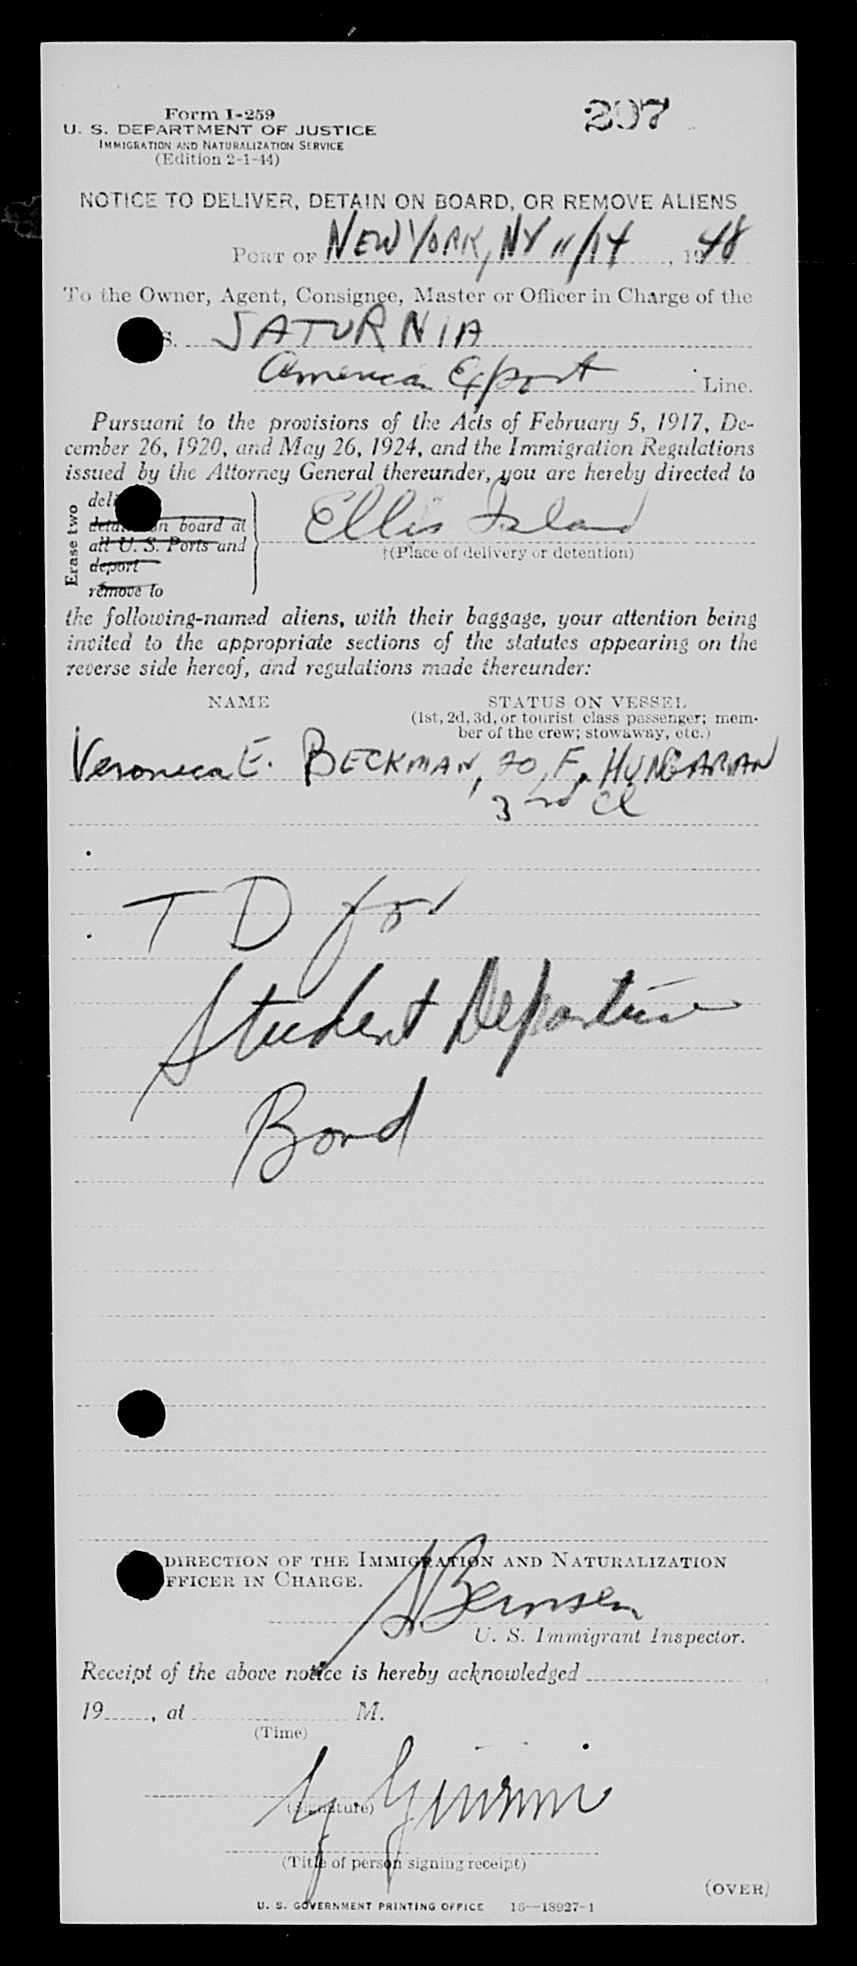 Form I-259
U. S. DEPARTMENT OF JUSTICE
IMMIGRATION AND NATURALIZATION SERVICE
(Edition 2-1-44)
207
NOTICE TO DELIVER, DETAIN ON BOARD, OR REMOVE ALIENS
PORT OF NEW YORK, NY 11/14, 1948
To the Owner, Agent, Consignee, Master or Officer in Charge of the
S. SATURNIA
American Export Line.
Pursuant to the provisions of the Acts of February 5, 1917, De-
cember 26, 1920, and May 26, 1924, and the Immigration Regulations
issued by the Attorney General thereunder, you are hereby directed to
Erase two
deli
detain on board at
all U. S. Ports and
deport
remove to
Ellis Island
†(Place of delivery or detention)
the following-named aliens, with their baggage, your attention being
invited to the appropriate sections of the statutes appearing on the
reverse side hereof, and regulations made thereunder:
NAME STATUS ON VESSEL
(1st, 2d, 3d, or tourist class passenger; mem-
ber of the crew; stowaway, etc.)
Veronica E. BECKMAN, 20, F, HUNGARIAN
3rd Cl
T D for
Student Departure
Bond
DIRECTION OF THE IMMIGRATION AND NATURALIZATION
FFICER IN CHARGE.
U. S. Immigrant Inspector.
Receipt of the above notice is hereby acknowledged
19, at M.
(Time)
(Signature)
(Title of person signing receipt)
(OVER)
U. S. GOVERNMENT PRINTING OFFICE 16—18927-1